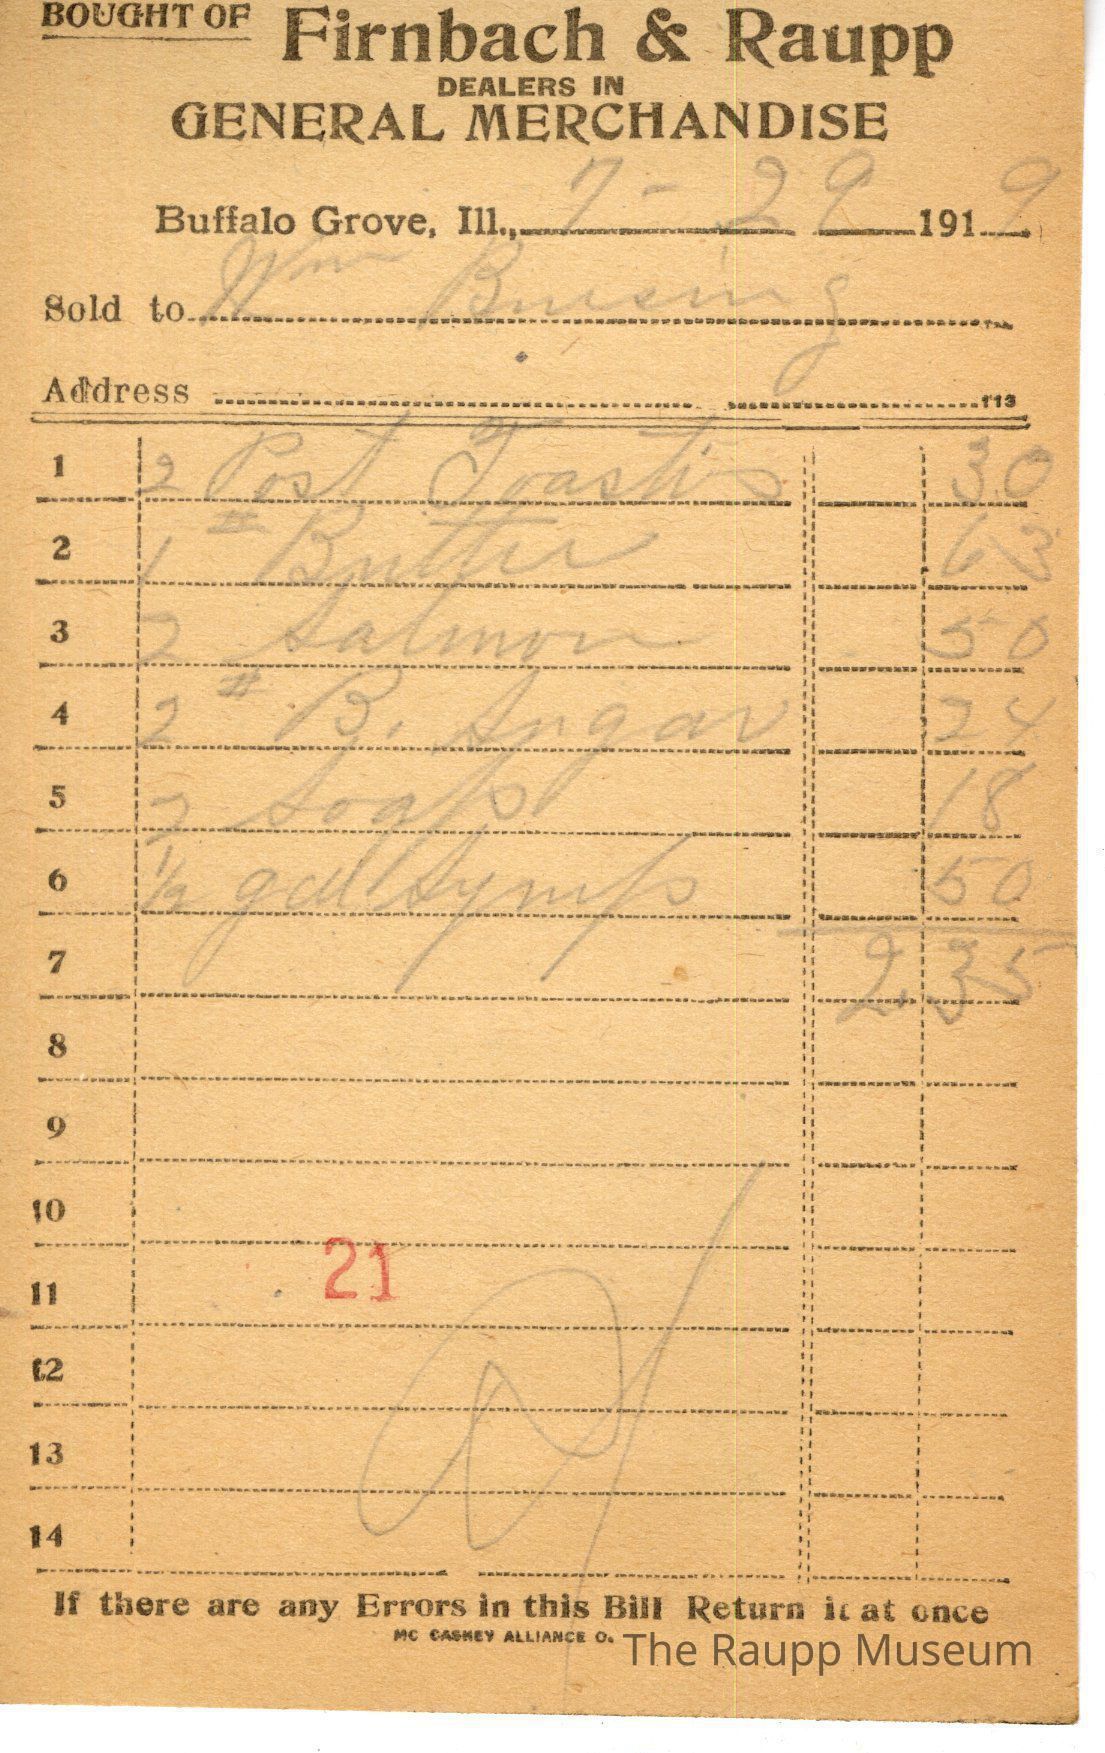 BOUGHT OF Firnbach & Raupp
DEALERS IN
GENERAL MERCHANDISE
Buffalo Grove, Ill., 7-29 1919
Sold to Wm Buesing
Address 113
1 2 Post Toasties 30
2 1 # Butter 63
3 2 Salmon 50
4 2 # B. Sugar 24
5 2 Soap 18
6 1/2 gal Syrup 50
7 2.35
8
9
10
21
11
12
13
14
If there are any Errors in this Bill Return it at once
MC CASKEY ALLIANCE O.
The Raupp Museum